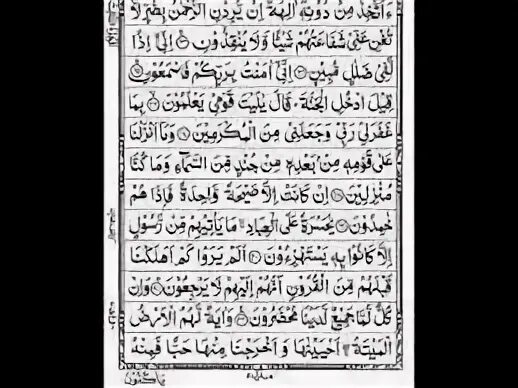 ءَاَتَّخِذُ مِنْ دُوْنِهٖۤ اٰلِهَةً اِنْ يُّرِدْنِ الرَّحْمٰنُ بِضُرٍّ لَّا
تُغْنِ عَنِّيْ شَفَاعَتُهُمْ شَيْـًٔا وَّلَا يُنْقِذُوْنِ ۚ اِنِّيْۤ اِذًا
لَّفِيْ ضَلٰلٍ مُّبِيْنٍ اِنِّيْۤ اٰمَنْتُ بِرَبِّكُمْ فَاسْمَعُوْنِ
قِيْلَ ادْخُلِ الْجَنَّةَ ؕ قَالَ يٰلَيْتَ قَوْمِيْ يَعْلَمُوْنَ بِمَا
غَفَرَ لِيْ رَبِّيْ وَجَعَلَنِيْ مِنَ الْمُكْرَمِيْنَ وَمَاۤ اَنْزَلْنَا
عَلٰى قَوْمِهٖ مِنْۢ بَعْدِهٖ مِنْ جُنْدٍ مِّنَ السَّمَآءِ وَمَا كُنَّا
مُنْزِلِيْنَ اِنْ كَانَتْ اِلَّا صَيْحَةً وَّاحِدَةً فَاِذَا هُمْ
خٰمِدُوْنَ يٰحَسْرَةً عَلَى الْعِبَادِ ۚ مَا يَاْتِيْهِمْ مِّنْ رَّسُوْلٍ
اِلَّا كَانُوْا بِهٖ يَسْتَهْزِءُوْنَ اَلَمْ يَرَوْا كَمْ اَهْلَكْنَا
قَبْلَهُمْ مِّنَ الْقُرُوْنِ اَنَّهُمْ اِلَيْهِمْ لَا يَرْجِعُوْنَ وَاِنْ
كُلٌّ لَّمَّا جَمِيْعٌ لَّدَيْنَا مُحْضَرُوْنَ وَاٰيَةٌ لَّهُمُ الْاَرْضُ
الْمَيْتَةُ ۚ اَحْيَيْنٰهَا وَاَخْرَجْنَا مِنْهَا حَبًّا فَمِنْهُ
يَاْكُلُوْنَ